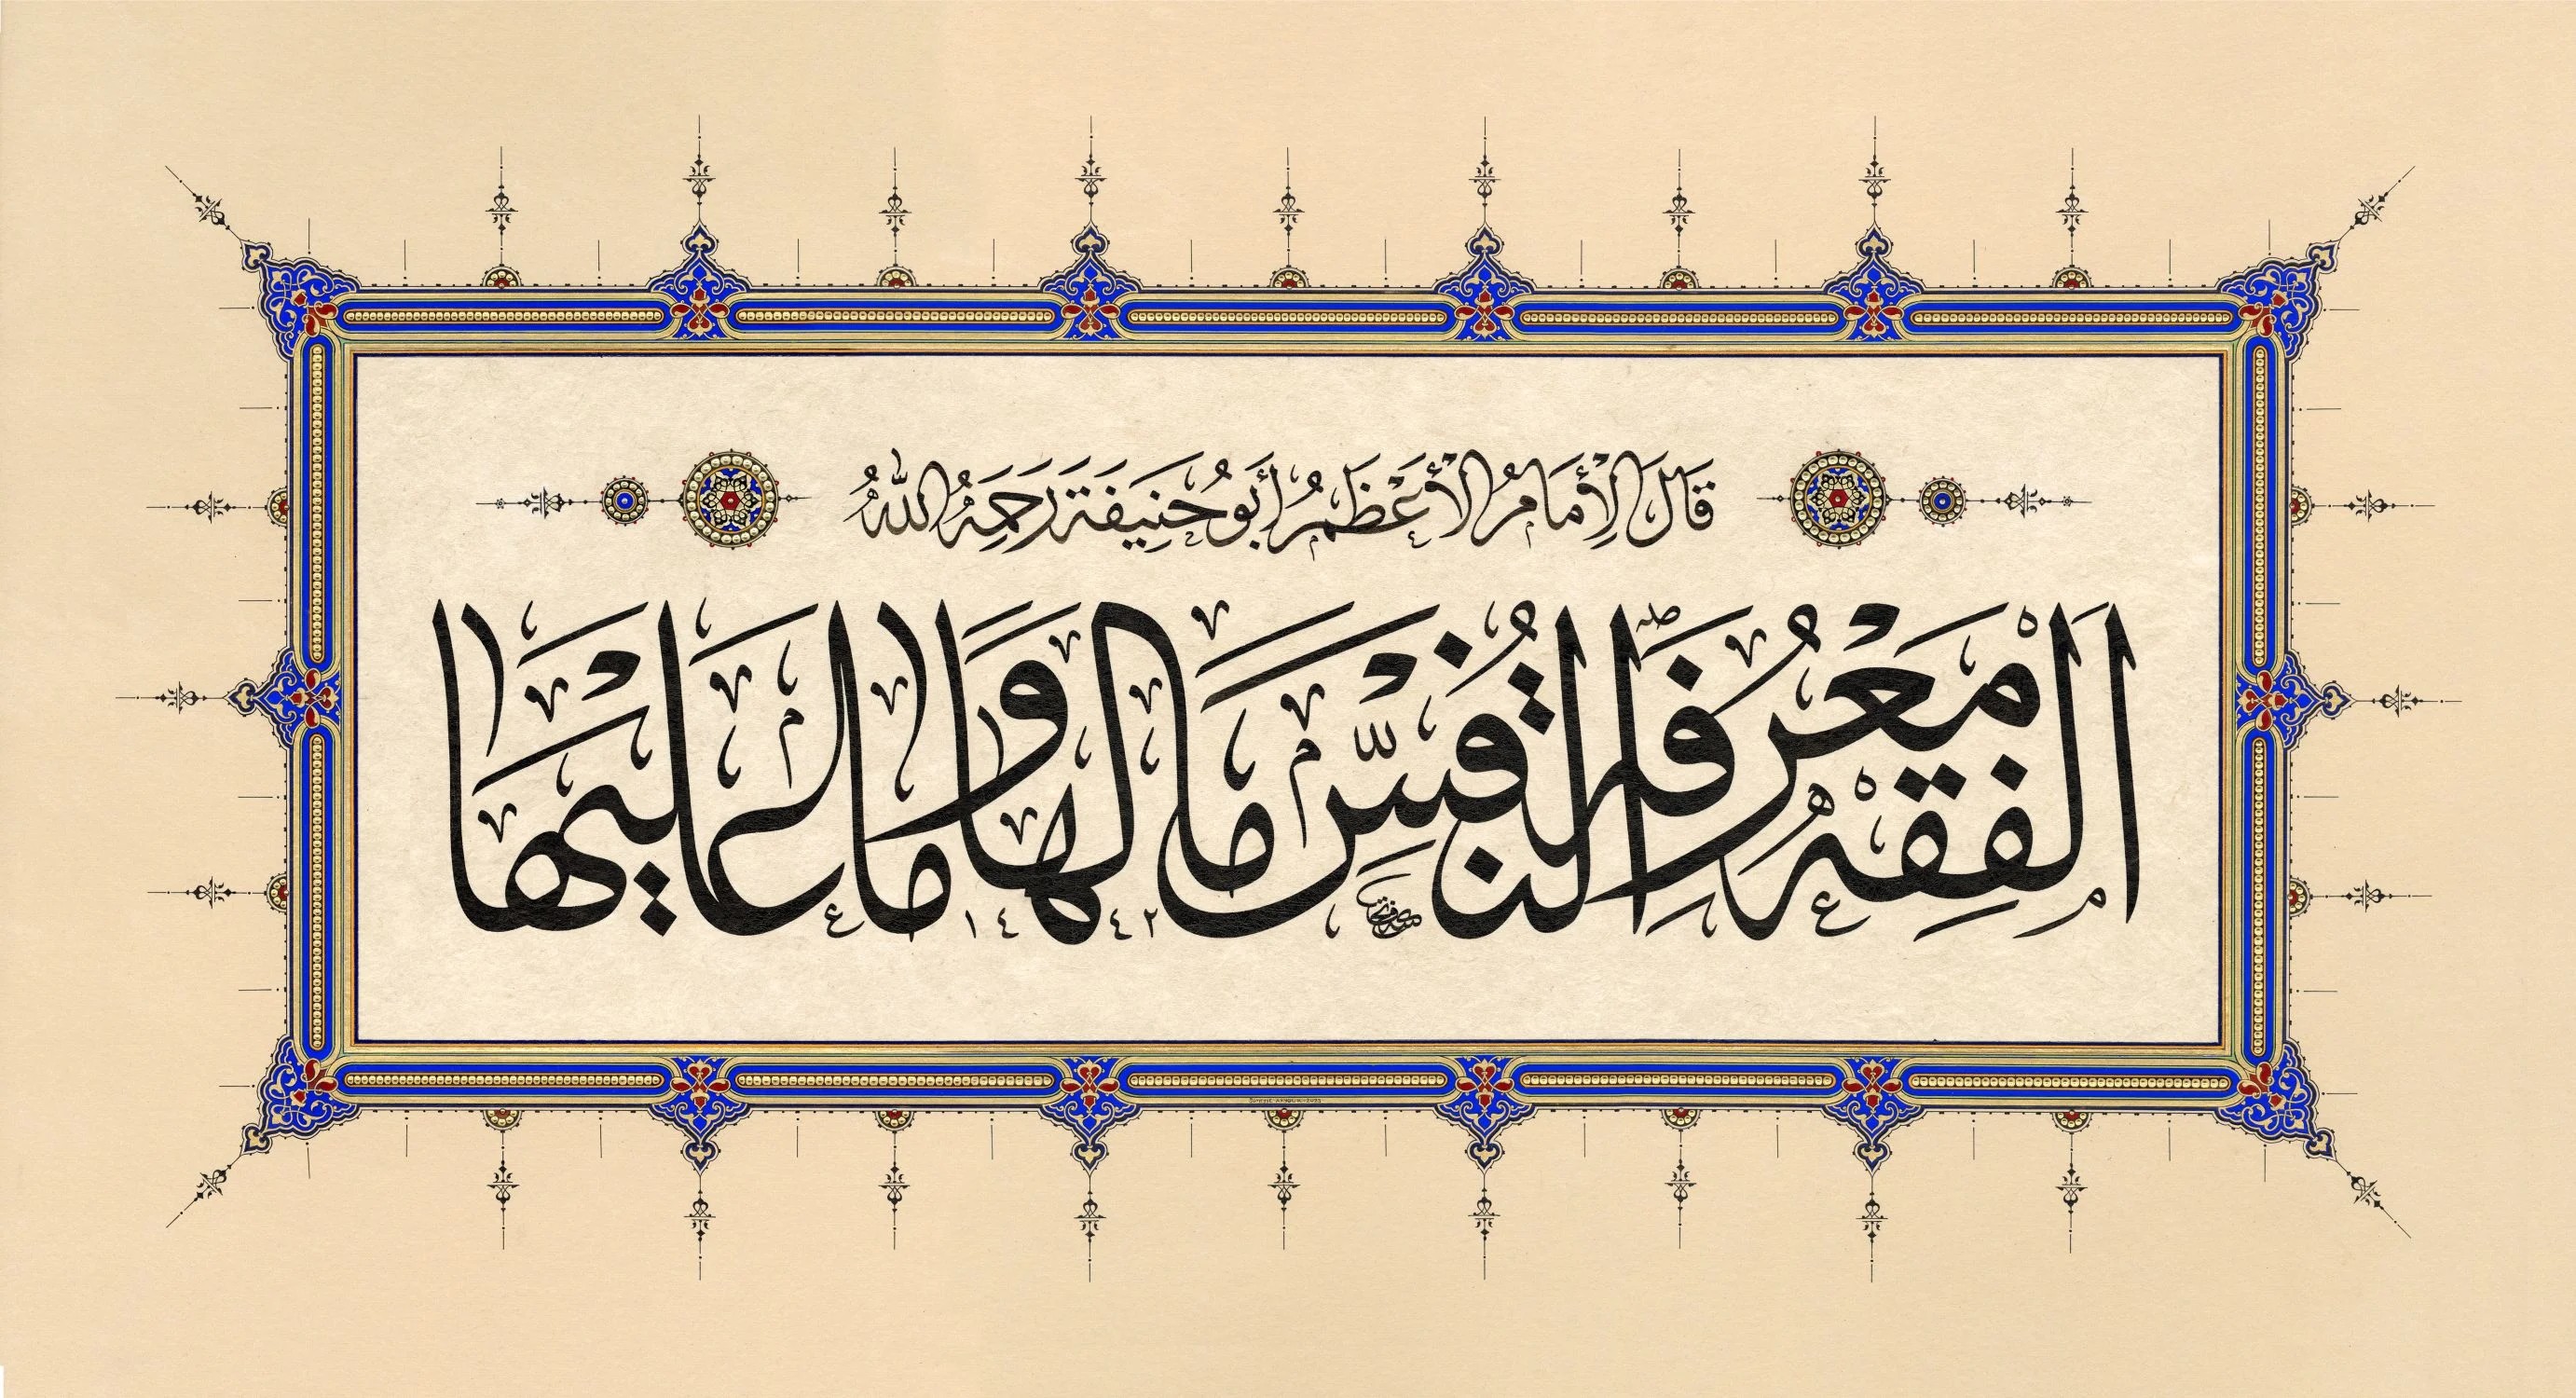 قَالَ الْإِمَامُ الْأَعْظَمُ أَبُو حَنِيفَةَ رَحِمَهُ اللّٰهُ
اَلْفِقْهُ مَعْرِفَةُ النَّفْسِ مَا لَهَا وَمَا عَلَيْهَا
١٤٤٢